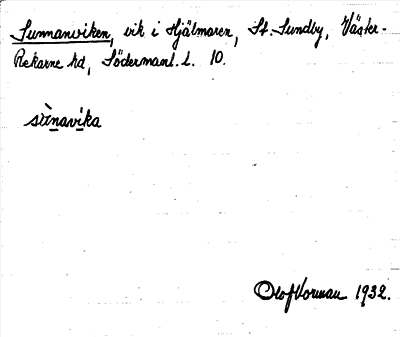 Sunnanviken, vik i Hjälmaren, St. Sundby, Väster-
Rekarne hd, Södermanl. L. 10.
sùnavika
Olof Vorman 1932.